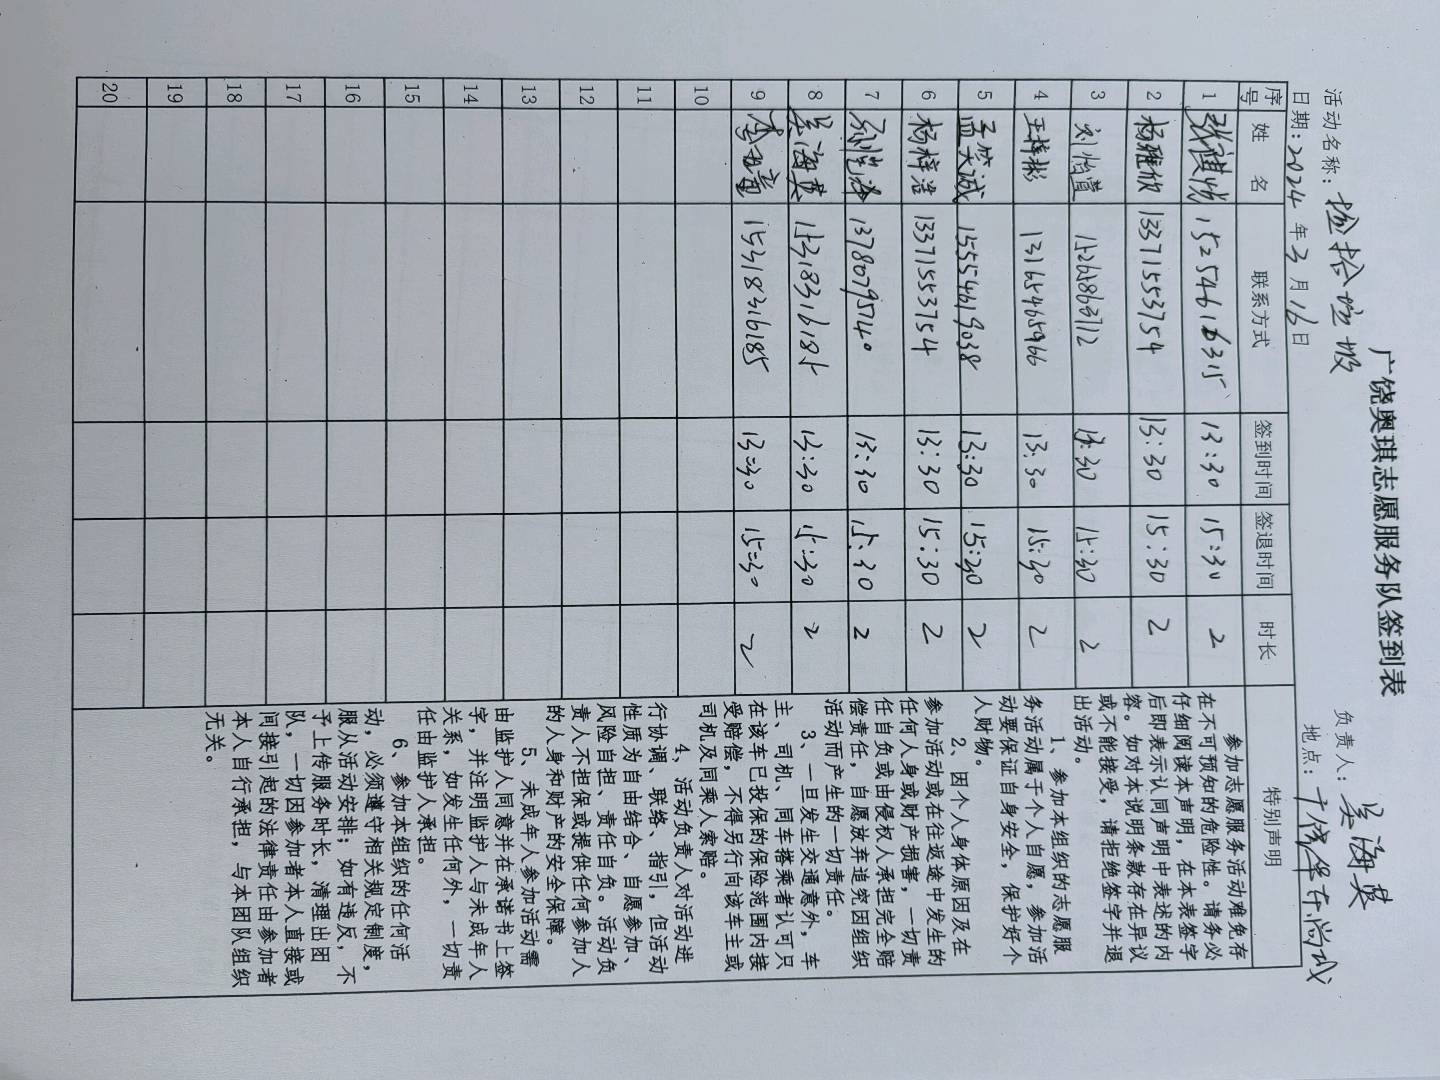 广饶奥琪志愿服务队签到表
活动名称：捡拾垃圾 负责人：吴海英
日期：2024年3月16日 地点：广饶华东尚城
序号 姓 名 联系方式 签到时间 签退时间 时长 特别声明
1 15254616315 13:30 15:30 2
2 杨雅欣 13371553754 13:30 15:30 2
3 刘怡萱 15265863712 13:30 15:30 2
4 王梓彬 13165465966 13:30 15:30 2
5 孟笑诚 15554619038 13:30 15:30 2
6 杨梓浩 13371553754 13:30 15:30 2
7 13780795140 13:30 15:30 2
8 吴海英 15318316185 13:30 15:30 2
9 15318316185 13:30 15:30 2
10
11
12
13
14
15
16
17
18
19
20
参加志愿服务活动难免存
在不可预知的危险性。请务必
仔细阅读本声明，在本表签字
后即表示认同声明中表述的内
容。如对本说明条款存在异议
或不能接受，请拒绝签字并退
出活动。
1、参加本组织的志愿服
务活动属于个人自愿，参加活
动要保证自身安全，保护好个
人财物。
2、因个人身体原因及在
参加活动或在往返途中发生的
任何人身或财产损害，一切责
任自负或由侵权人承担完全赔
偿责任，自愿放弃追究因组织
活动而产生的一切责任。
3、一旦发生交通意外，车
主、司机、同车搭乘者认可只
在该车已投保的保险范围内接
受赔偿，不得另行向该车主或
司机及同乘人索赔。
4、活动负责人对活动进
行协调、联络、指引，但活动
性质为自由结合、自愿参加、
风险自担、责任自负。活动负
责人不担保或提供任何参加人
的人身和财产的安全保障。
5、未成年人参加活动需
由监护人同意并在承诺书上签
字，并注明监护人与未成年人
关系，如发生任何外，一切责
任由监护人承担。
6、参加本组织的任何活
动，必须遵守相关规定制度，
服从活动安排；如有违反，不
予上传服务时长，清理出团
队，一切因参加者本人直接或
间接引起的法律责任由参加者
本人自行承担，与本团队组织
无关。